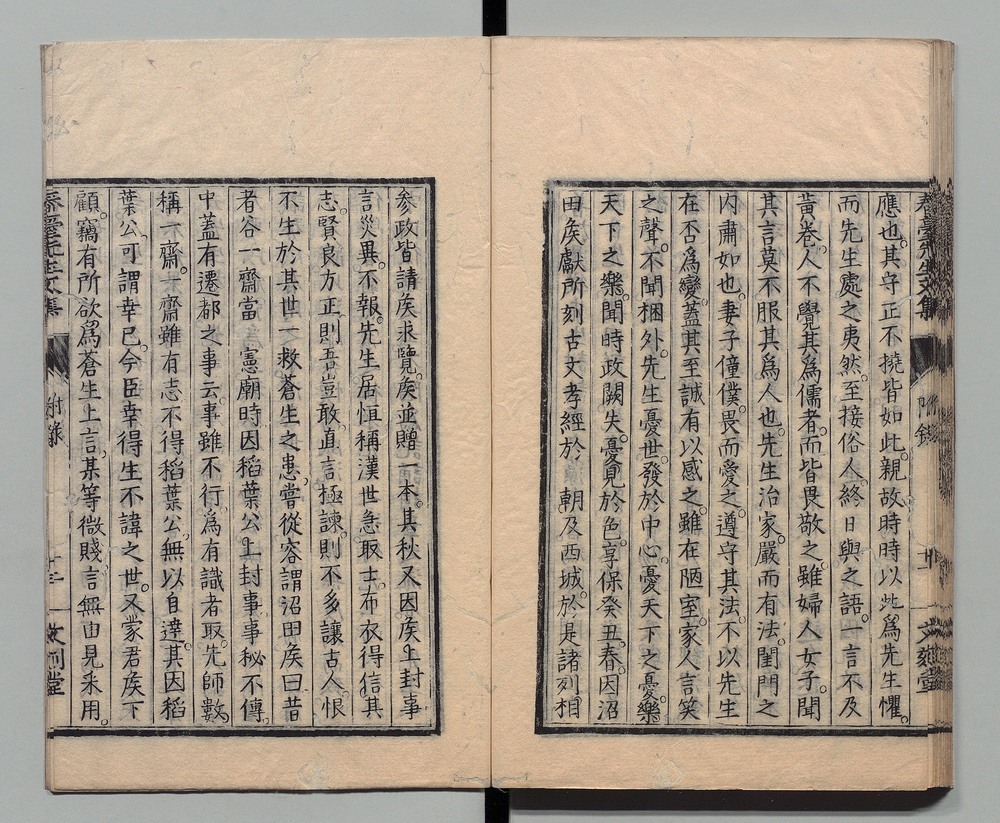 應也。其守正不撓皆如此。親故時時以此爲先生懼。
而先生處之夷然。至接俗人。終日與之語。一言不及
黃卷。人不覺其爲儒者。而皆畏敬之。雖婦人女子。聞
其言莫不服其爲人也。先生治家嚴而有法。閨門之
内肅如也。妻子僮僕。畏而愛之。遵守其法。不以先生
在否爲變。蓋其至誠有以感之。雖在陋室。家人言笑
之聲。不聞梱外。先生憂世。發於中心。憂天下之憂。樂
天下之樂。聞時政闕失。憂見於色。享保癸丑。春。因沼
田矦獻所刻古文孝經於　朝。及西城。於是諸列相
參政皆請矦求覽。矦並贈一本。其秋又因矦上封事
言災異。不報。先生居恒稱漢世急取士。布衣得信其
志。賢良方正。則吾豈敢。直言極諫。則不多讓古人。恨
不生於其世一救蒼生之患。嘗從容謂沼田矦曰昔
者谷一齋當　憲廟時因稻葉公上封事。事秘不傳。
中蓋有遷都之事云。事雖不行。爲有識者取。先師數
稱一齋。一齋雖有志不得稻葉公。無以自達。其因稻
葉公。可謂幸已。今臣幸得生不諱之世。又蒙君矦下
顧。竊有所欲爲蒼生上言。某等微賤。言無由見采用。
春臺先生文集
附錄